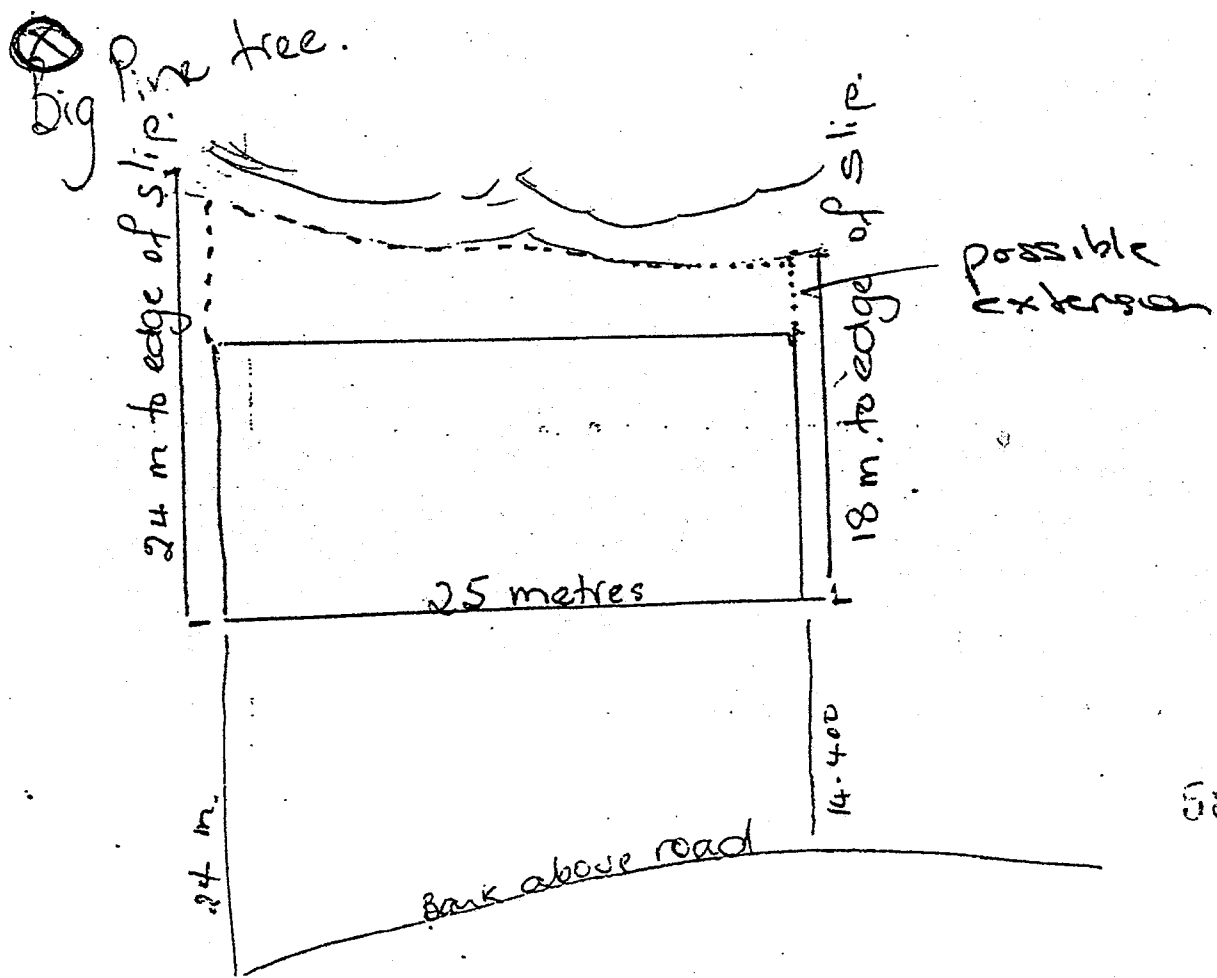 big Pine tree.
24 m to edge of slip.
18 m. to edge of slip.
possible
extension
25 metres
24 m.
14.400
Bank above road